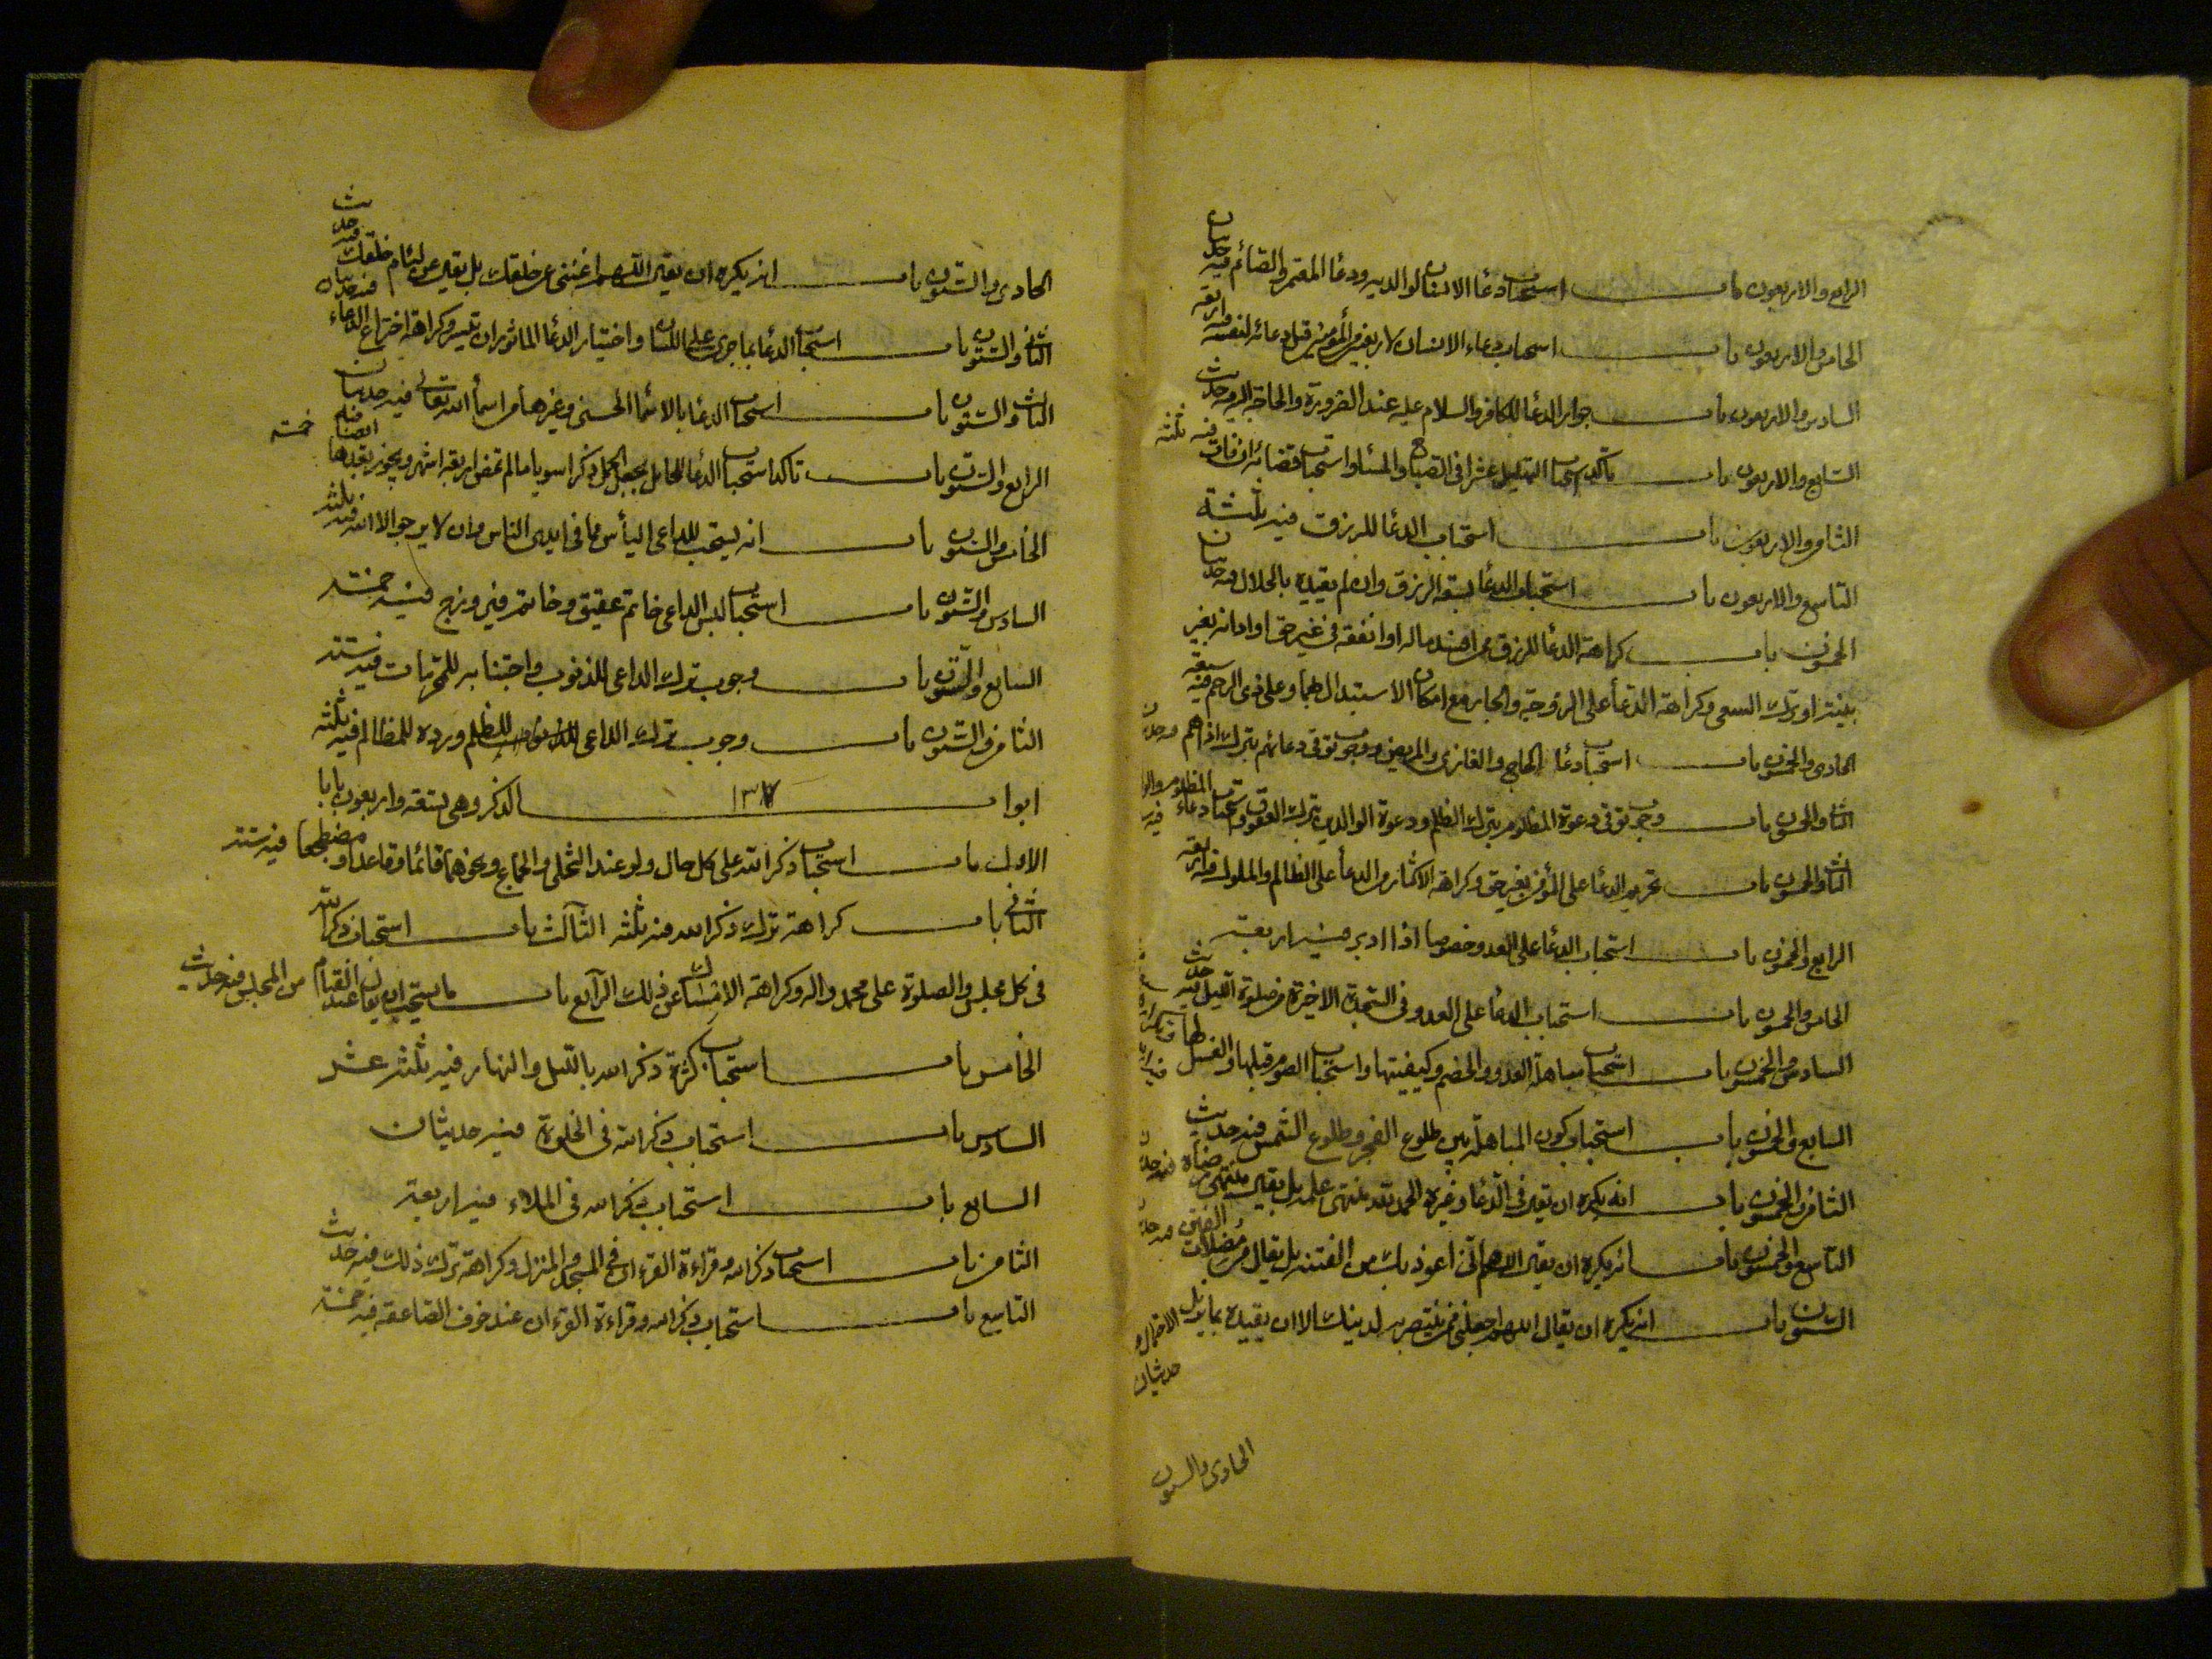 الرابع والاربعون باب استحباب دعا الانسان لوالديه ودعا المعتمر والصائم فيه حديثان
الخامس والاربعون باب استحباب دعاء الانسان لاربعين من المؤمنين قبل دعائه لنفسه فيه اربعة
السادس والاربعون باب جواز الدعا للكافر والسلام عليه عند الضرورة والحاجة اليه فيه حديث
السابع والاربعون باب تأكد استحباب التهليل عشرا في الصباح والمساء واستحباب قضائه ان فات فيه ثلثة
الثامن والاربعون باب استحباب الدعا للرزق فيه ثلثة
التاسع والاربعون باب استحباب الدعا لسعة الرزق وان لم يقيده بالحلال فيه حديثان
الخمسون باب كراهة الدعا للرزق ممن افسد ماله او انفقه في غير حق او ادانه بغير
بينة او ترك السعى وكراهة الدعأ على الزوجة والجار مع امكان الاستبدال بهما وعلى ذى الرحم فيه سبعة
الحادى والخمسون باب استحباب دعا الحاج والغازى والمريض ووجوب توقى دعائهم بترك اذاهم فيه حديثان
الثانى والخمسون باب وجوب توقى دعوة المظلوم بترك الظلم ودعوة الوالدين بترك العقوق واستحباب دعاء المظلوم والوا فيه
الثالث والخمسون باب تحريم الدعا على المؤمن بغير حق وكراهة الاكثار من الدعأ على الظالم والملوك فيه اربعة
الرابع والخمسون باب استحباب الدعا على العدو خصوصا اذا ادبر فيه اربعة
الخامس والخمسون باب استحباب الدعأ على العدو في السجدة الاخيرة من صلوة الليل فيه حديث
السادس والخمسون باب استحباب مباهلة العدو والخصم وكيفيتها واستحباب الصوم قبلها والغسل لها
السابع والخمسون باب استحباب كون المباهلة بين طلوع الفجر وطلوع الشمس فيه حديث
الثامن والخمسون باب انه يكره ان يقال في الدعا وغيره الحمد لله منتهى علمه بل يقال منتهى رضاه فيه حديثان
التاسع والخمسون باب انه يكره ان يقال اللهم انى اعوذ بك من الفتنة بل يقال من مضلات الفتن فيه حديثان
الستون باب انه يكره ان يقال اللهم اجعلنى ممن تنتصر به لدينك الا ان يقيده بما يزيل الاحتمال فيه
حديثان
الحادى والستون
الحادى والستون باب انه يكره ان يقال اللهم اغننى عن خلقك بل يقال عن لئام خلقك فيه حديث
الثانى والستون باب استحباب الدعا بما جرى على اللسان واختيار الدعا الماثور ان تيسر وكراهة اختراع الدعاء فيه حديثان
الثالث والستون باب استحباب الدعا بالاسما الحسنى وغيرها من اسمأ الله تعالى فيه حديثان
الرابع والستون باب تاكد استحباب الدعا للحامل بجعل الحمل ذكرا سويا ما لم تمض اربعة اشهر ويجوز بعدها ايضا فيه خمسة
الخامس والستون باب انه يستحب للداعى اليأس مما في ايدى الناس وان لا يرجو الا الله فيه ثلثة
السادس والستون باب استحباب لبس الداعى خاتم عقيق وخاتم فيروزج فيه خمسة
السابع والستون باب وجوب ترك الداعى للذنوب واجتنابه للمحرمات فيه ستة
الثامن والستون باب وجوب ترك الداعى للظلم ورده للمظالم فيه ثلثة
ابوا ١٣٧ الذكر وهى تسعة واربعون بابا
الاول باب استحباب ذكر الله على كل حال ولو عند التخلى والجماع ونحوهما قائما وقاعدا ومضطجعا فيه ستة
الثانى باب كراهة ترك ذكر الله فيه ثلثة الثالث باب استحباب ذكر الله
في كل مجلس والصلوة على محمد واله وكراهة الامساك عن ذلك الرابع باب ما يستحب ان يقال عند القيام من المجلس فيه حديث
الخامس باب استحباب كثرة ذكر الله بالليل والنهار فيه ثلثة عشر
السادس باب استحباب ذكر الله في الخلوة فيه حديثان
السابع باب استحباب ذكر الله في الملاء فيه اربعة
الثامن باب استحباب ذكر الله وقراءة القرءان في المسجد والمنزل وكراهة ترك ذلك فيه حديث
التاسع باب استحباب ذكر الله وقراءة القرءان عند خوف الصاعقة فيه خمسة